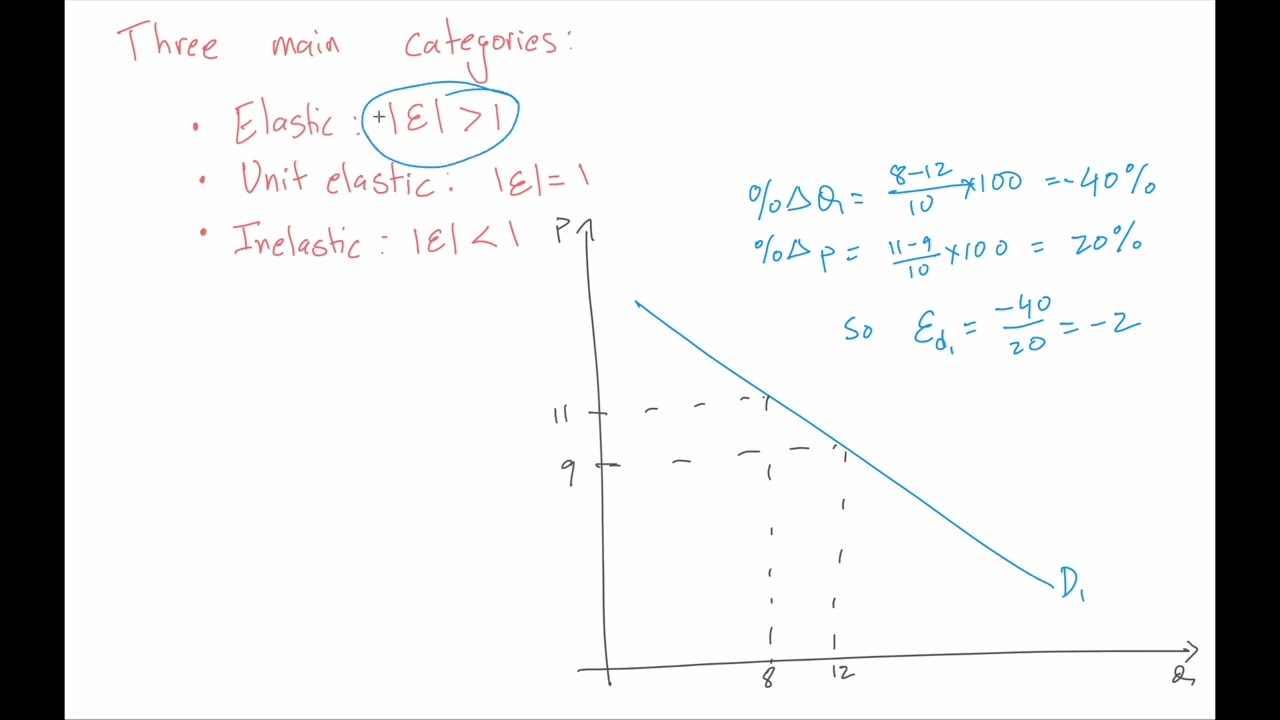 Three main categories:
• Elastic: |ε| > 1
• Unit elastic: |ε| = 1
• Inelastic: |ε| < 1
%ΔQ = 8-12/10 × 100 = -40%
%ΔP = 11-9/10 × 100 = 20%
So εd₁ = -40/20 = -2
P
11
9
D₁
8
12
Q